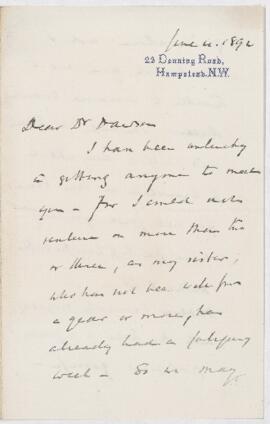 June 4. 1892
23 Denning Road,
Hampstead. N.W.
Dear Dr Dawson
I have been unlucky
in getting anyone to meet
you - for I could not
venture on more than two
or three, as my sister,
who has not been well for
a year or more, has
already had a fatiguing
week - So we may